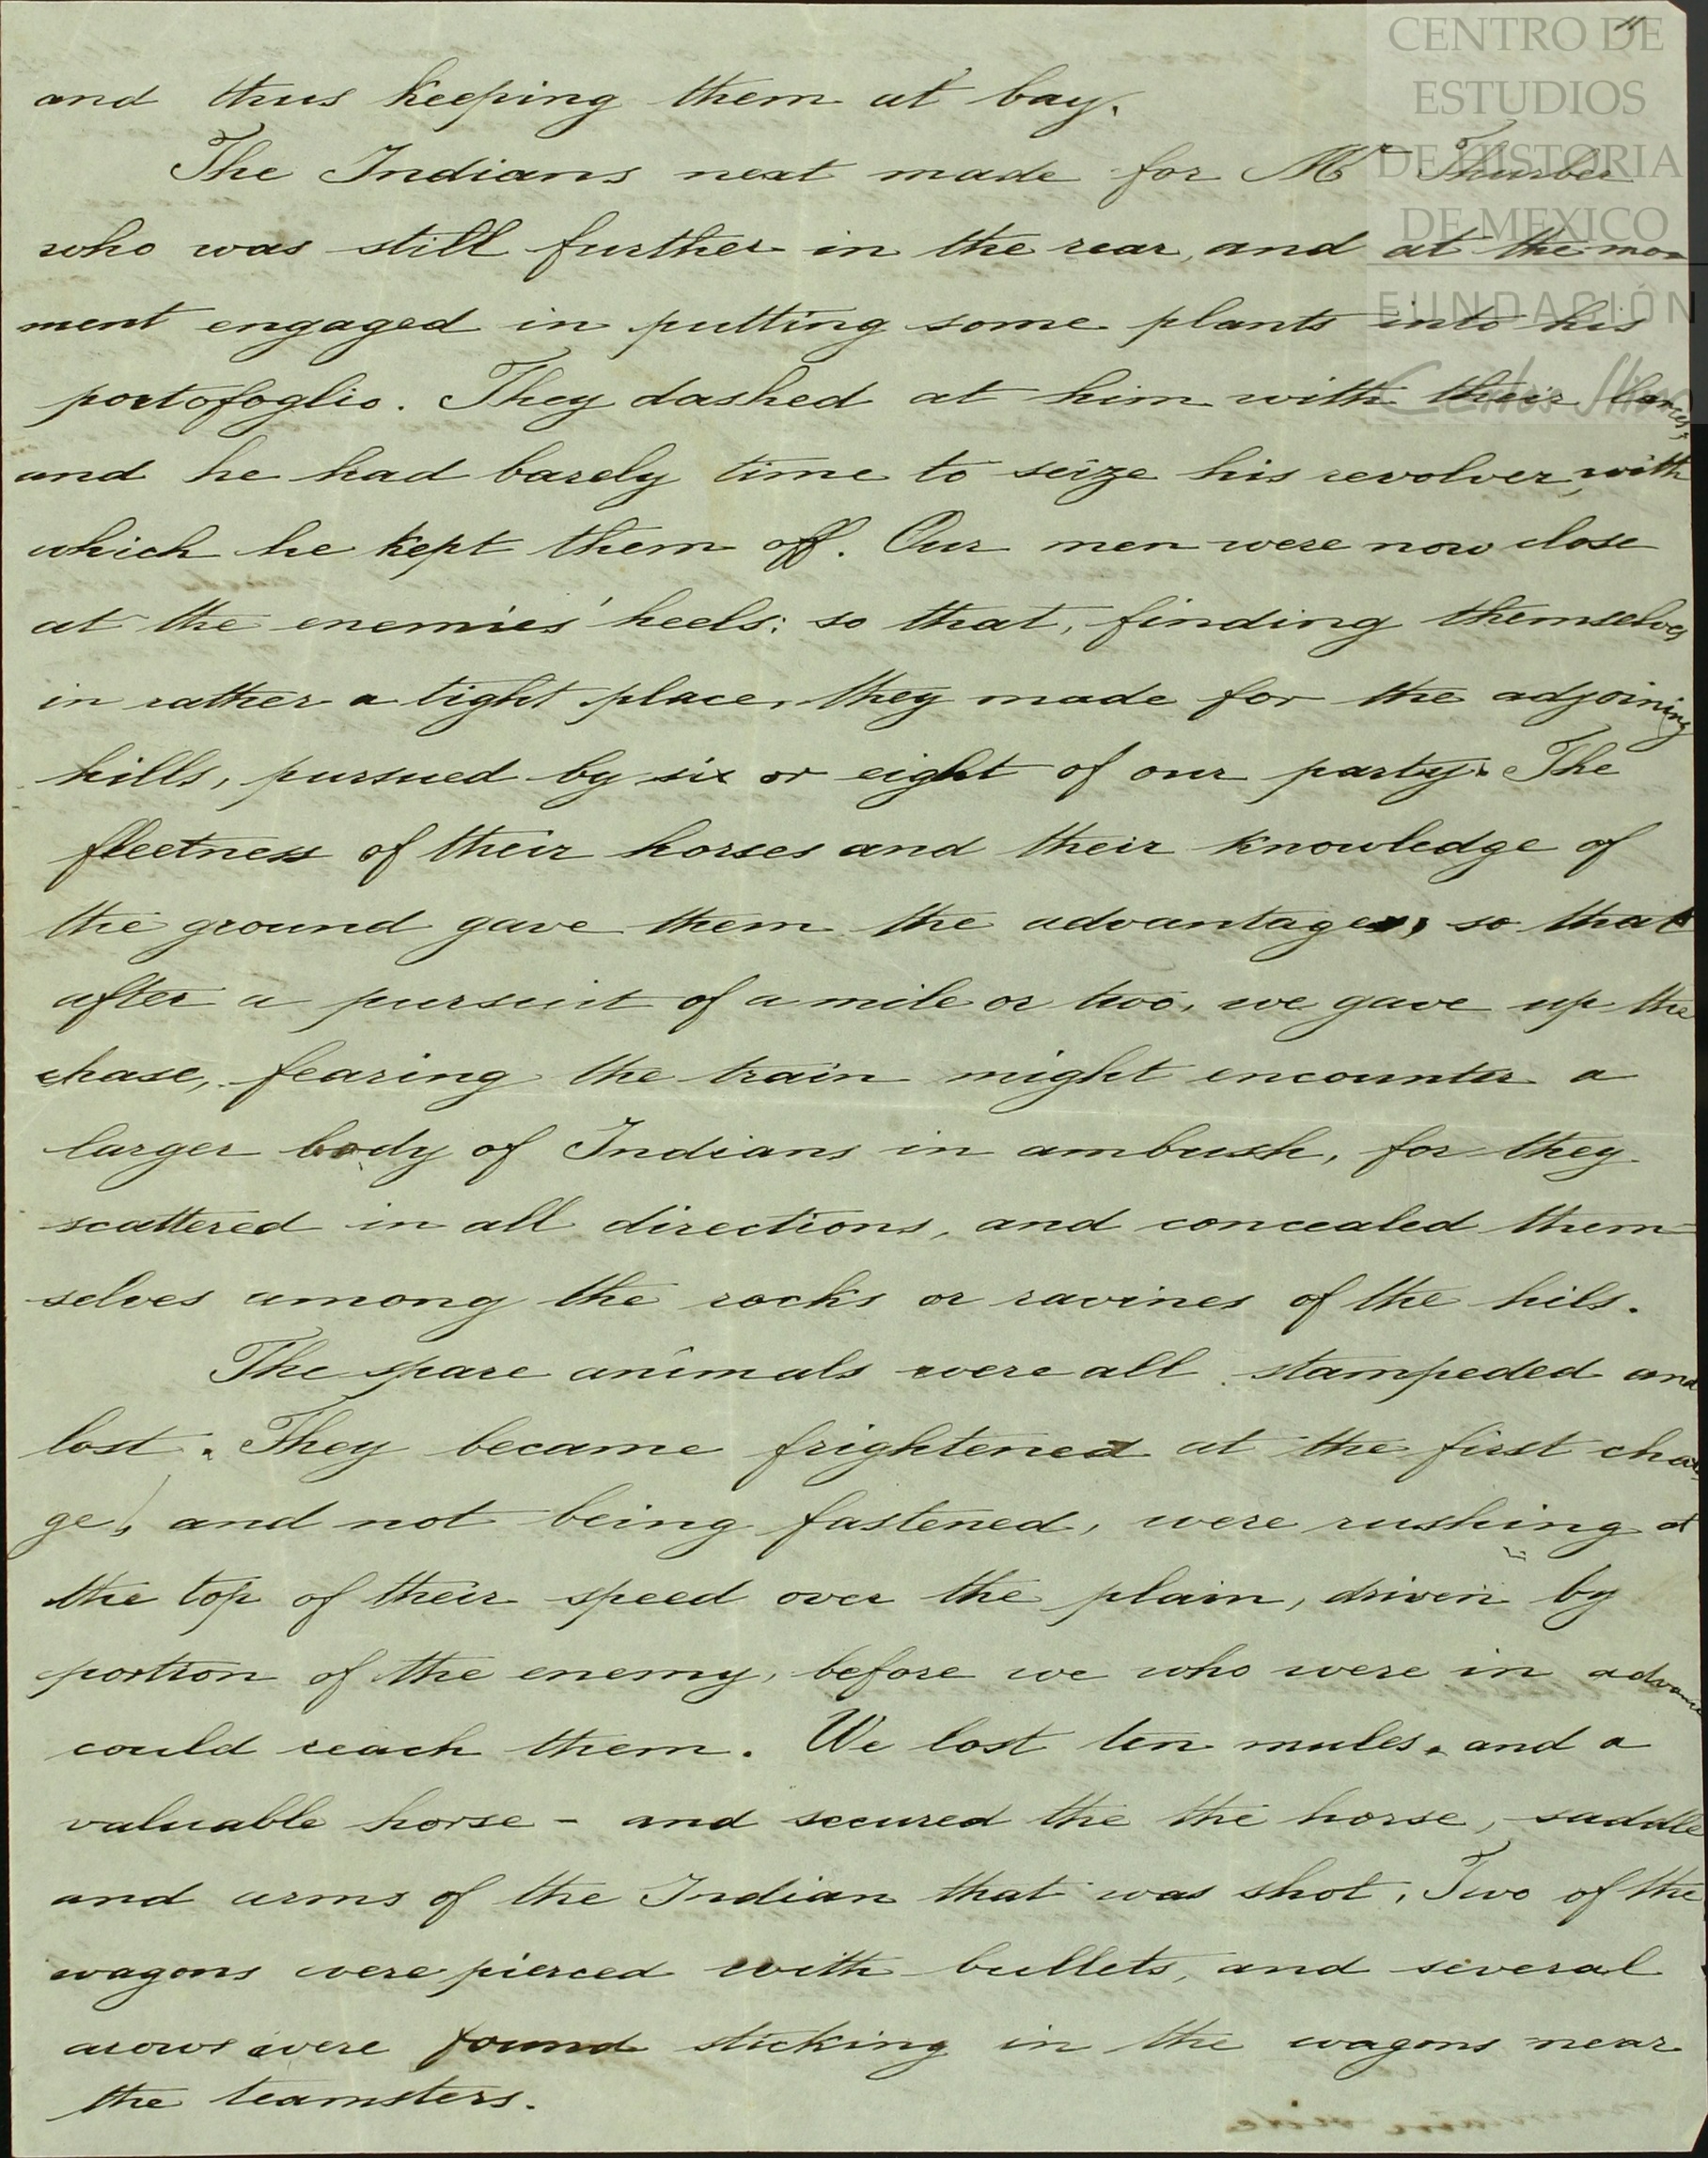 11
CENTRO DE
ESTUDIOS
DE HISTORIA
DE MEXICO
FUNDACIÓN
Carlos Slim
and thus keeping them at bay.
The Indians next made for Mr Thurber
who was still further in the rear, and at the mo=
ment engaged in putting some plants into his
portofoglio. They dashed at him with their lances,
and he had barely time to seize his revolver, with
which he kept them off. Our men were now close
at the enemies' heels; so that, finding themselves
in rather a tight place, they made for the adjoining
hills, pursued by six or eight of our party. The
fleetness of their horses and their knowledge of
the ground gave them the advantage, so that
after a pursuit of a mile or two, we gave up the
chase, fearing the train might encounter a
larger body of Indians in ambush, for they
scattered in all directions, and concealed them=
selves among the rocks or ravines of the hils.
The spare animals were all stampeded and
lost. They became frightened at the first char=
ge, and not being fastened, were rushing at
the top of their speed over the plain, driven by
portion of the enemy, before we who were in advance
could reach them. We lost ten mules, and a
valuable horse - and secured the the horse, saddle
and arms of the Indian that was shot. Two of the
wagons were pierced with bullets, and several
arows were found sticking in the wagons near
the teamsters.